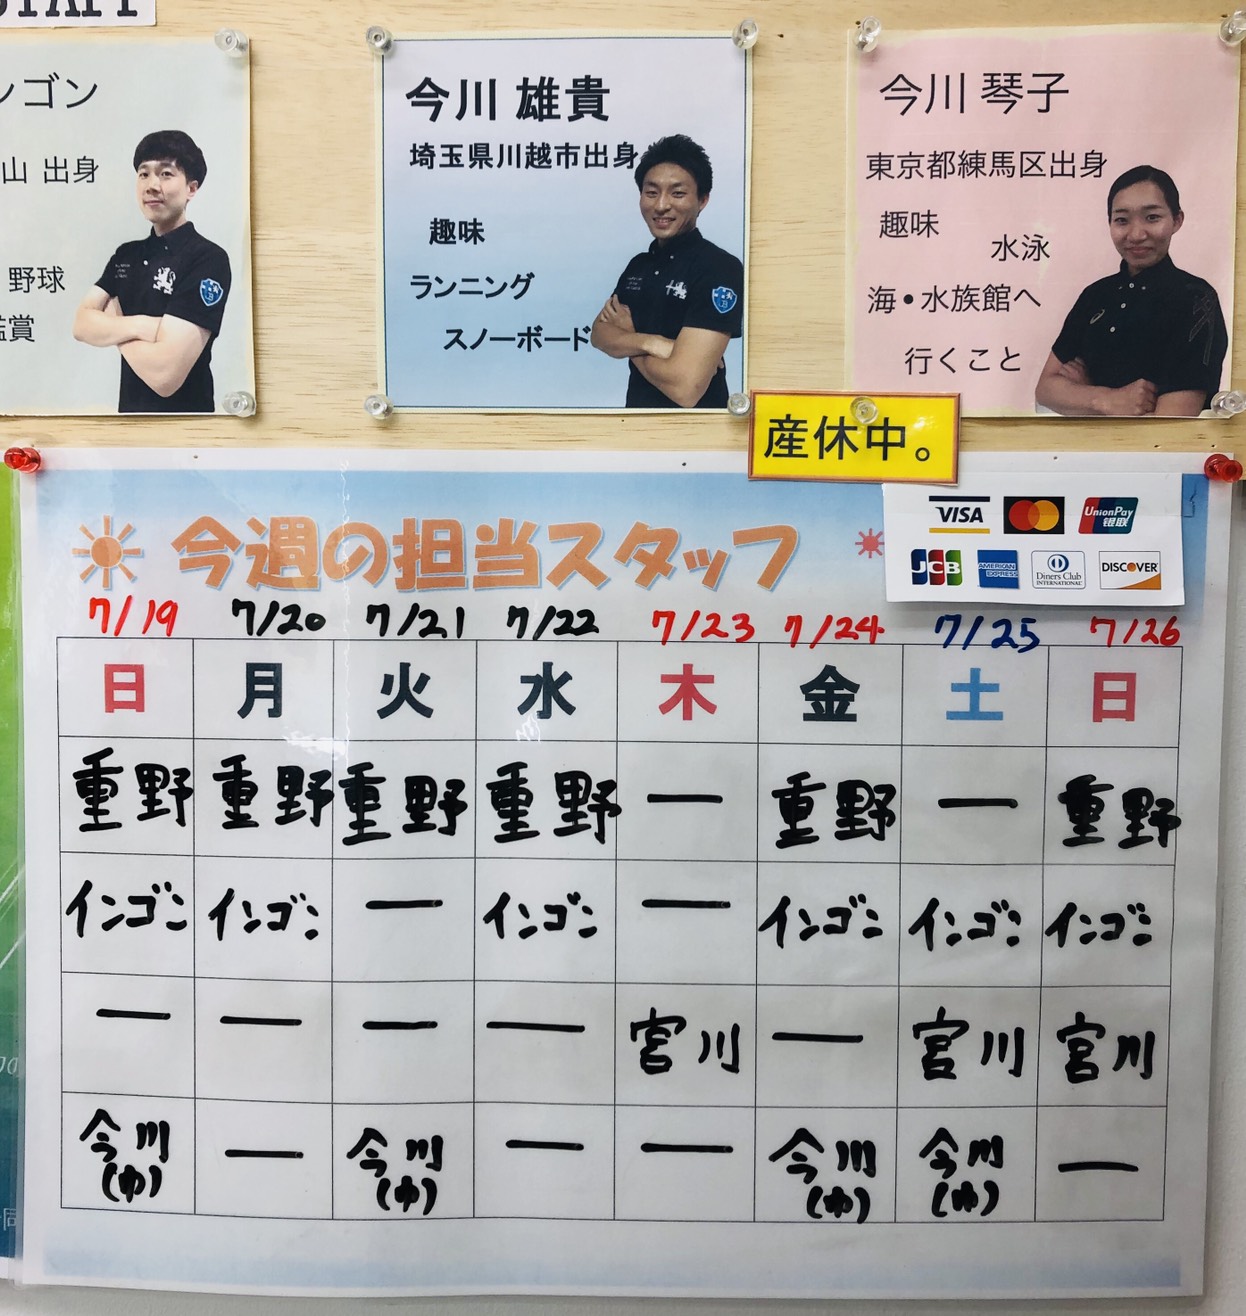 STAFF
ンゴン
山 出身
野球
鑑賞
今川 雄貴
埼玉県川越市出身
趣味
ランニング
スノーボード
今川 琴子
東京都練馬区出身
趣味
水泳
海・水族館へ
行くこと
産休中。
VISA
UnionPay
银联
JCB
AMERICAN EXPRESS
Diners Club
INTERNATIONAL
DISCOVER
今週の担当スタッフ
7/19 7/20 7/21 7/22 7/23 7/24 7/25 7/26
日 月 火 水 木 金 土 日
重野 重野 重野 重野 — 重野 — 重野
インゴン インゴン — インゴン — インゴン インゴン インゴン
— — — — 宮川 — 宮川 宮川
今川 — 今川 — — 今川 今川 —